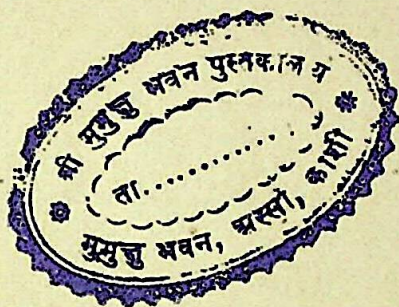 श्री मुमुक्षु भवन पुस्तकालय
ता............
मुमुक्षु भवन, अस्सी, काशी